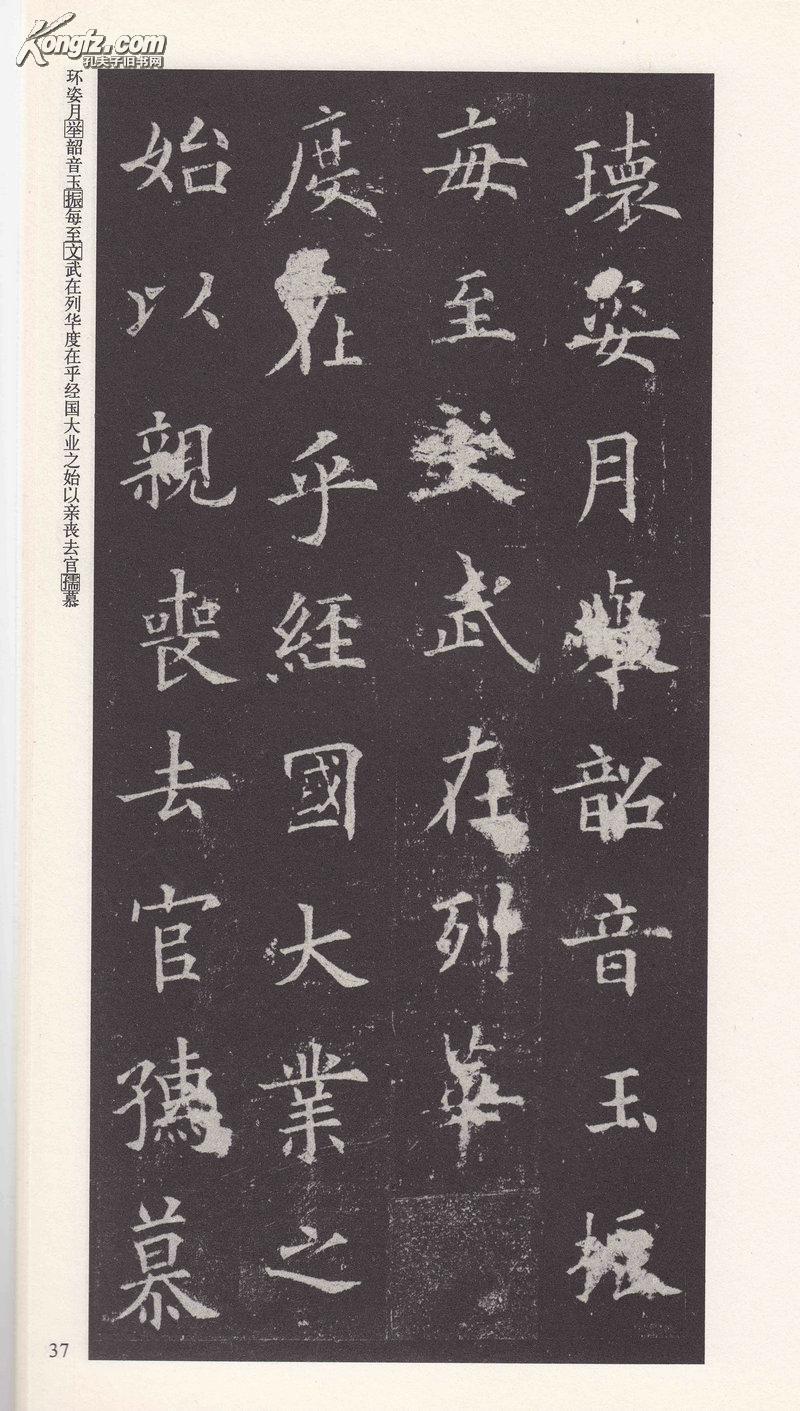 Kongfz.com
孔夫子旧书网
瓌姿月舉韶音玉振
每至文武在列華
度在乎經國大業之
始以親喪去官孺慕
环姿月举韶音玉振每至文武在列华度在乎经国大业之始以亲丧去官孺慕
37